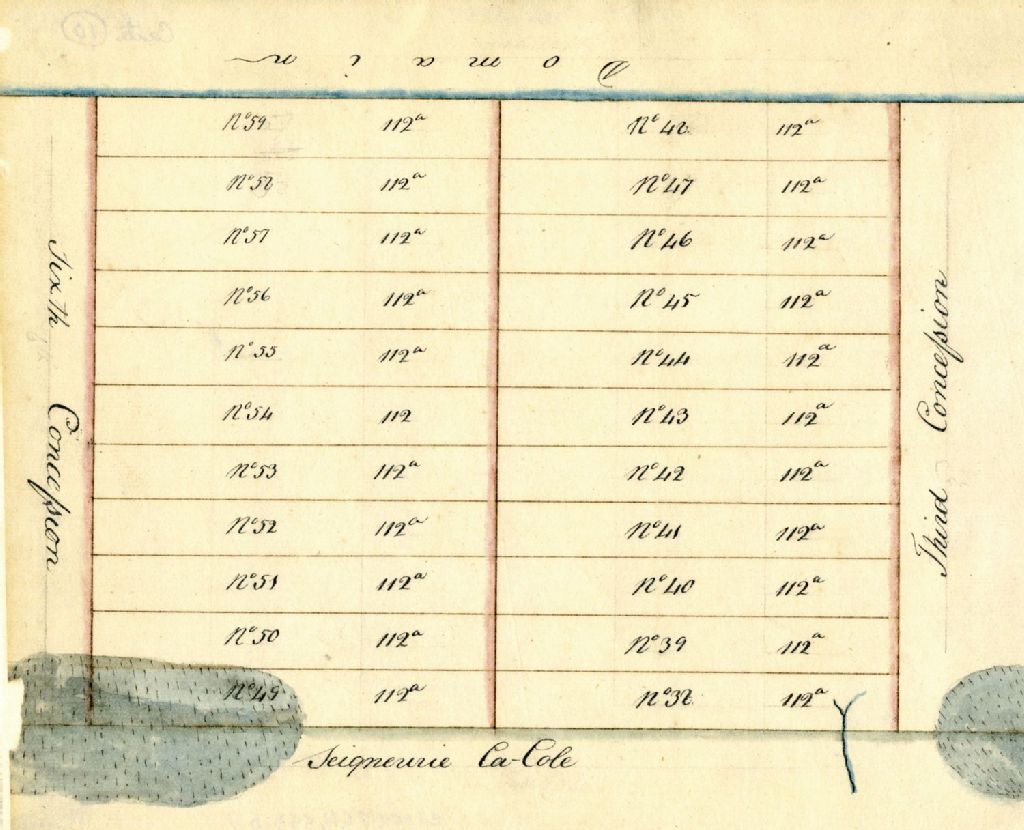 Domain
N° 59 112ᵃ N° 48 112ᵃ
N° 58 112ᵃ N° 47 112ᵃ
N° 57 112ᵃ N° 46 112ᵃ
N° 56 112ᵃ N° 45 112ᵃ
N° 55 112ᵃ N° 44 112ᵃ
N° 54 112 N° 43 112ᵃ
N° 53 112ᵃ N° 42 112ᵃ
N° 52 112ᵃ N° 41 112ᵃ
N° 51 112ᵃ N° 40 112ᵃ
N° 50 112ᵃ N° 39 112ᵃ
N° 49 112ᵃ N° 38 112ᵃ
Sixth Conceſsion
Third Conceſsion
Seigneurie La-Cole